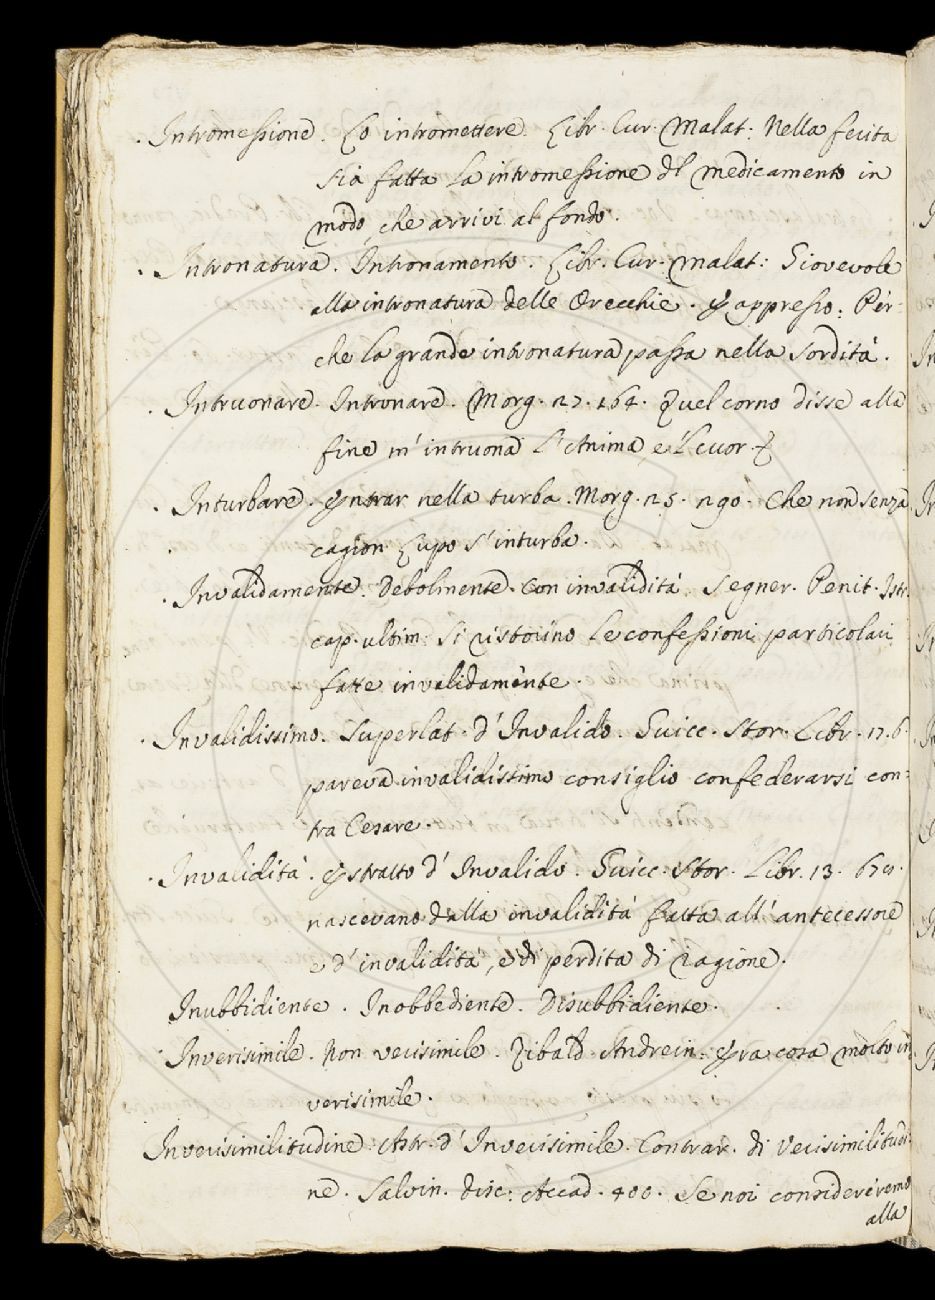 Intromessione. Lo intromettere. Libr. Cur. Malat: Nella ferita
sia fatta la intromessione dl medicamento in
modo, che arrivi al fondo.
Intronatura. Intronamento. Libr. Cur. Malat: Giovevole
alla intronatura delle Orecchie. E appresso: Per-
che la grande intronatura passa nella sordità.
Intruonare. Intronare. Morg. 27. 164. Quel corno disse alla
fine m' intruona L' Anima, e 'l cuor
Inturbare. Entrar nella turba. Morg. 25. 290. Che non senza
cagion Lupo s' inturba.
Invalidamente. Debolmente. Con invalidità. Segner. Penit. Istr.
cap. ultim: Si ristorino le confessioni particolari
fatte invalidamente.
Invalidissimo. Superlat. d' Invalido. Guicc. Stor. Libr. 17. 6
pareva invalidissimo consiglio confederarsi con-
tra Cesare.
Invalidità. Astratto d' Invalido. Guicc. Stor. Libr. 13.
nascevano dalla invalidità fatta all' antecessore
e d' invalidità, e di perdita di ragione.
Inubbidiente. Inobbediente. Disubbidiente.
Inverisimile. Non verisimile. Zibald. Andrein. Era cosa molto in
verisimile.
Inverisimilitudine. Astr. d' Inverisimile. Contrar. di Verisimilitudi-
ne. Salvin. disc: Accad. 400. Se noi considereremo
alla